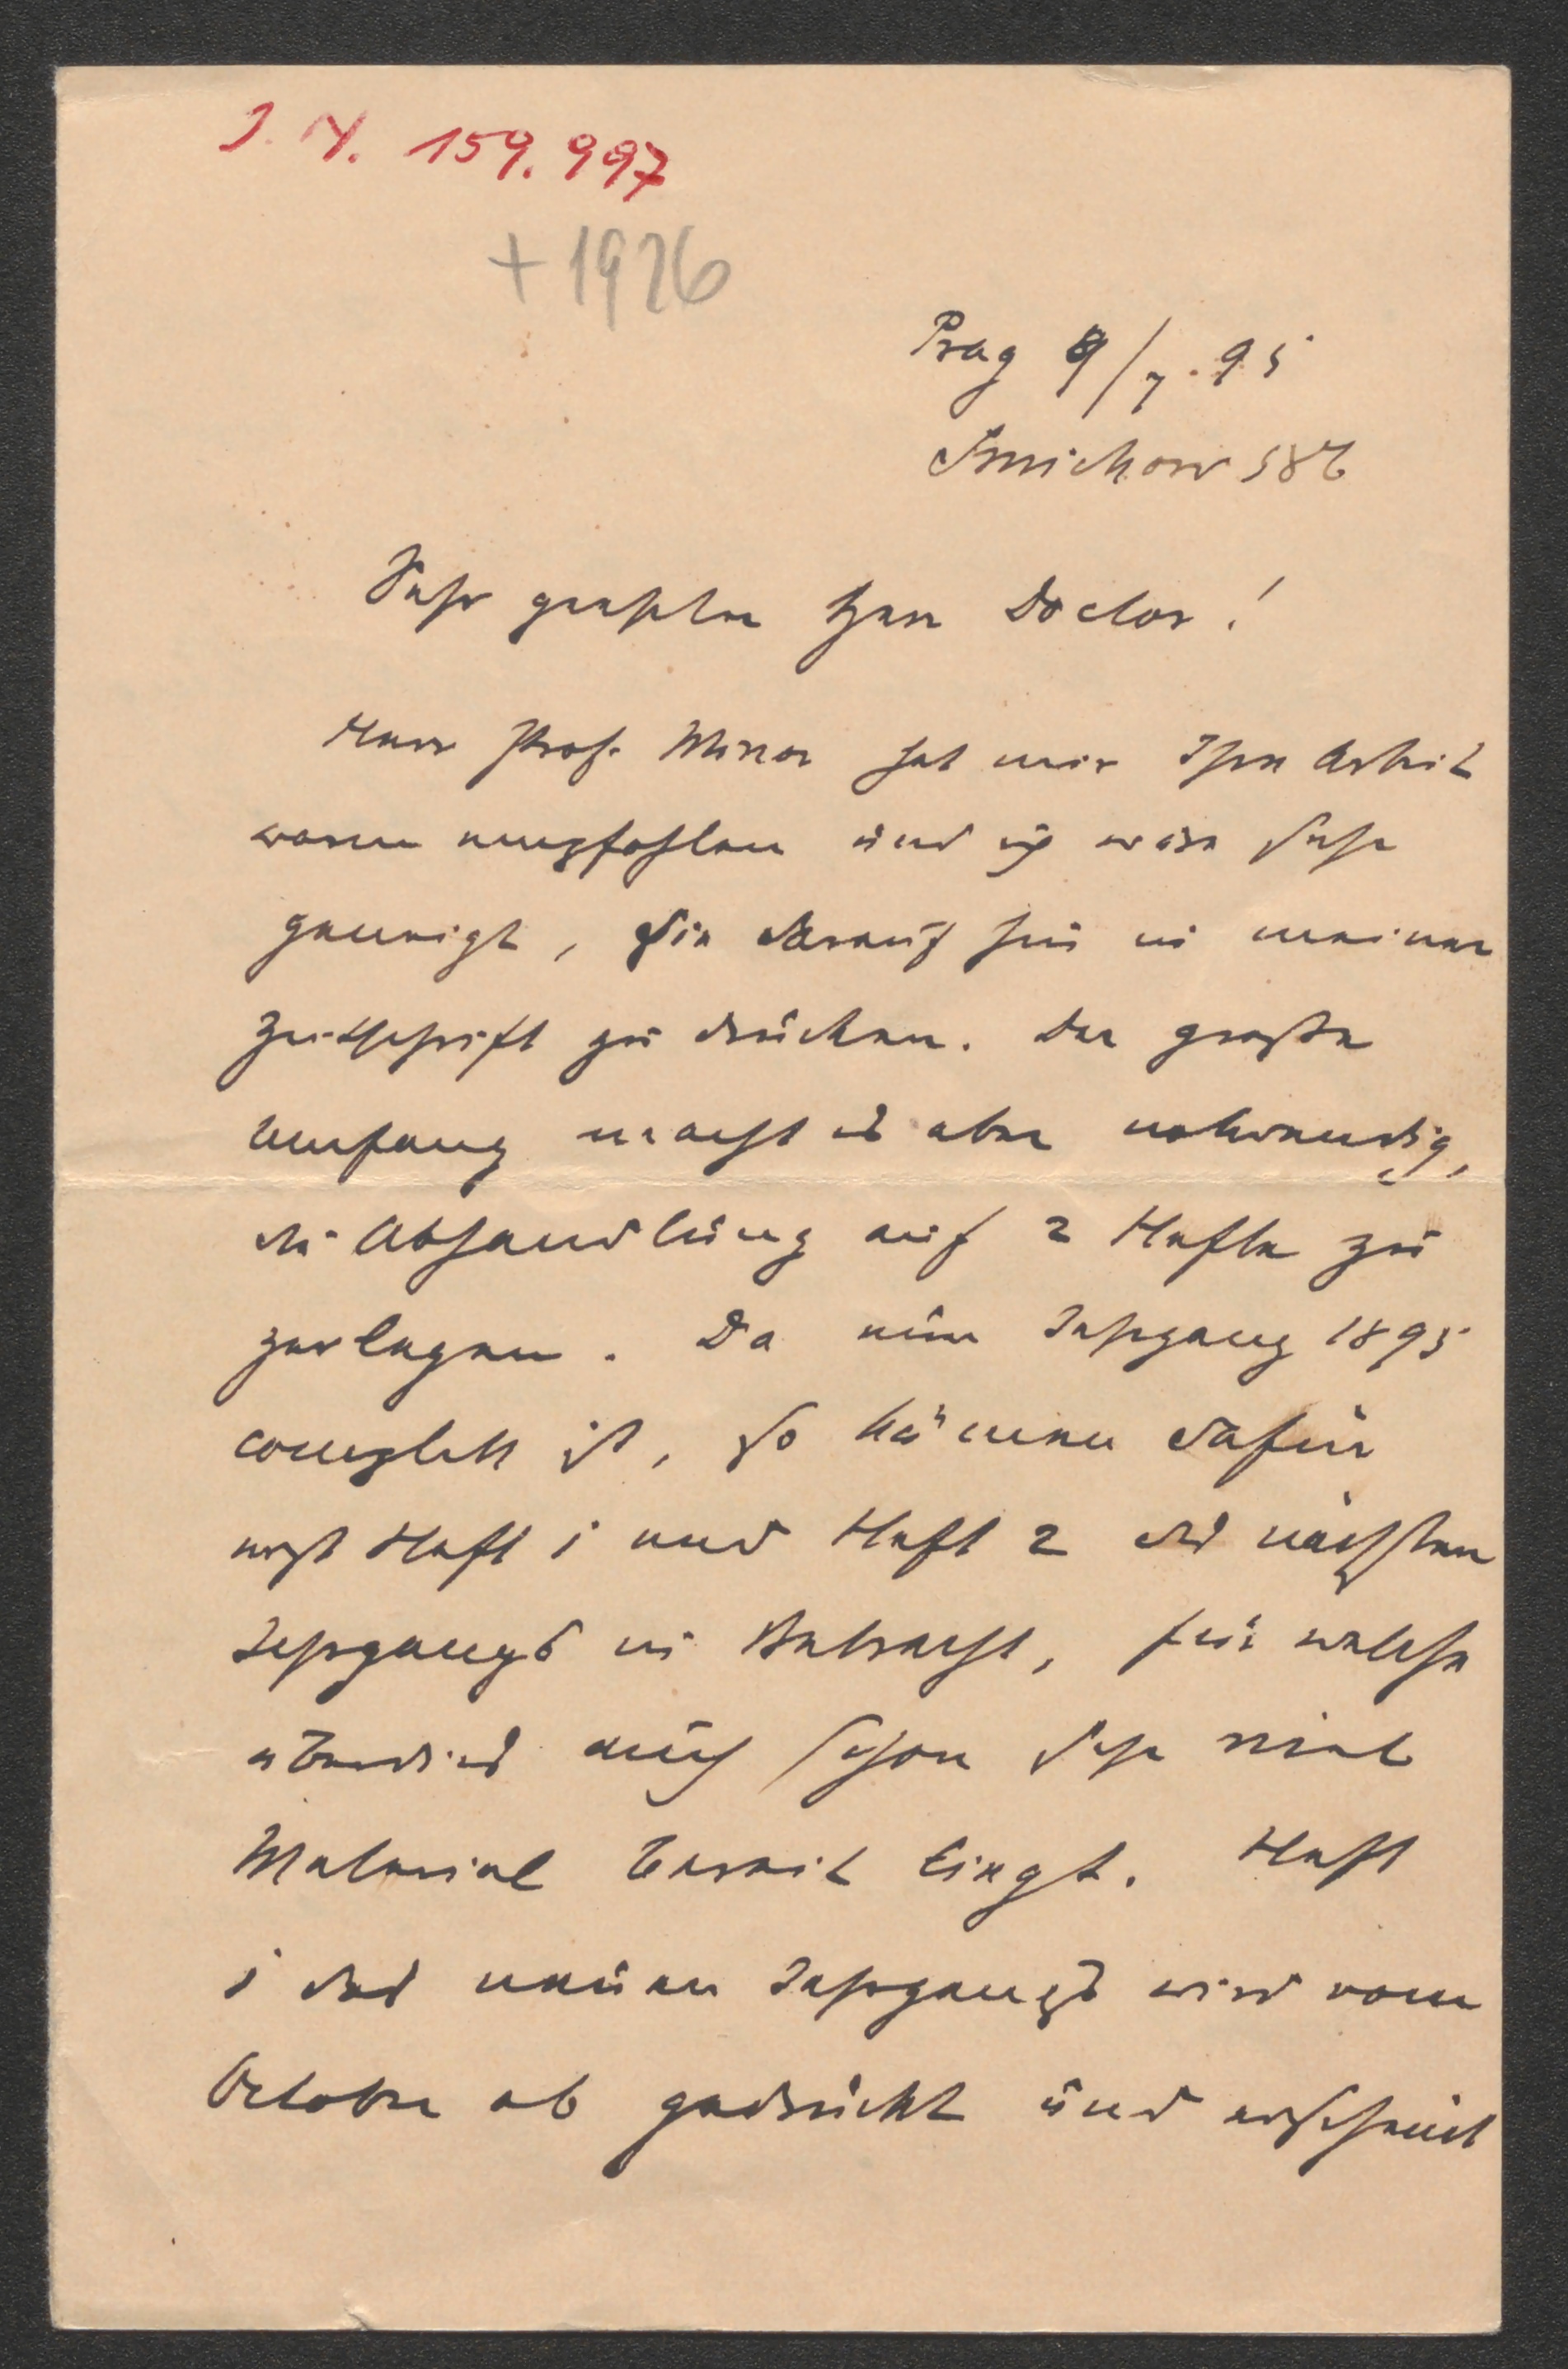 I. N. 159.997
+ 1926
Prag 9/7. 95
Smichow 586
Sehr geehrter Herr Doctor!
Herr Prof. Minor hat mir Ihre Arbeit
warm empfohlen und ich wäre sehr
geneigt, sie darauf hin in meiner
Zeitschrift zu drucken. Der große
Umfang macht es aber notwendig,
die Abhandlung auf 2 Hefte zu
zerlegen. Da nun Jahrgang 1895
complett ist, so kämen dafür
erst Heft 1 und Heft 2 des nächsten
Jahrgangs in Betracht, für welche
überdies auch schon sehr viel
Material bereit liegt. Heft
1 des neuen Jahrgangs wird vom
October ab gedruckt und erscheint